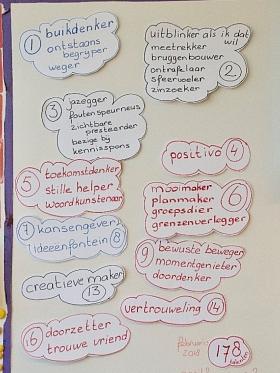 1 buikdenker
ontstaans
begrijper
weger
uitblinker als ik dat
wil
meetrekker
bruggenbouwer
ontrafelaar
sfeervoeler 2
zinzoeker
3 jazegger
foutenspeurneus
zichtbare
presteerder
bezige bij
kennisspons
positivo 4
5 toekomstdenker
stille helper
woordkunstenaar
mooimaker 6
planmaker
groepsdier
grenzenverlegger
7 kansengever
ideeënfontein 8
9 bewuste beweger
momentgenieter
doordenker
creatieve maker
13
vertrouweling 14
16 doorzetter
trouwe vriend
februari
2018
178
talenten